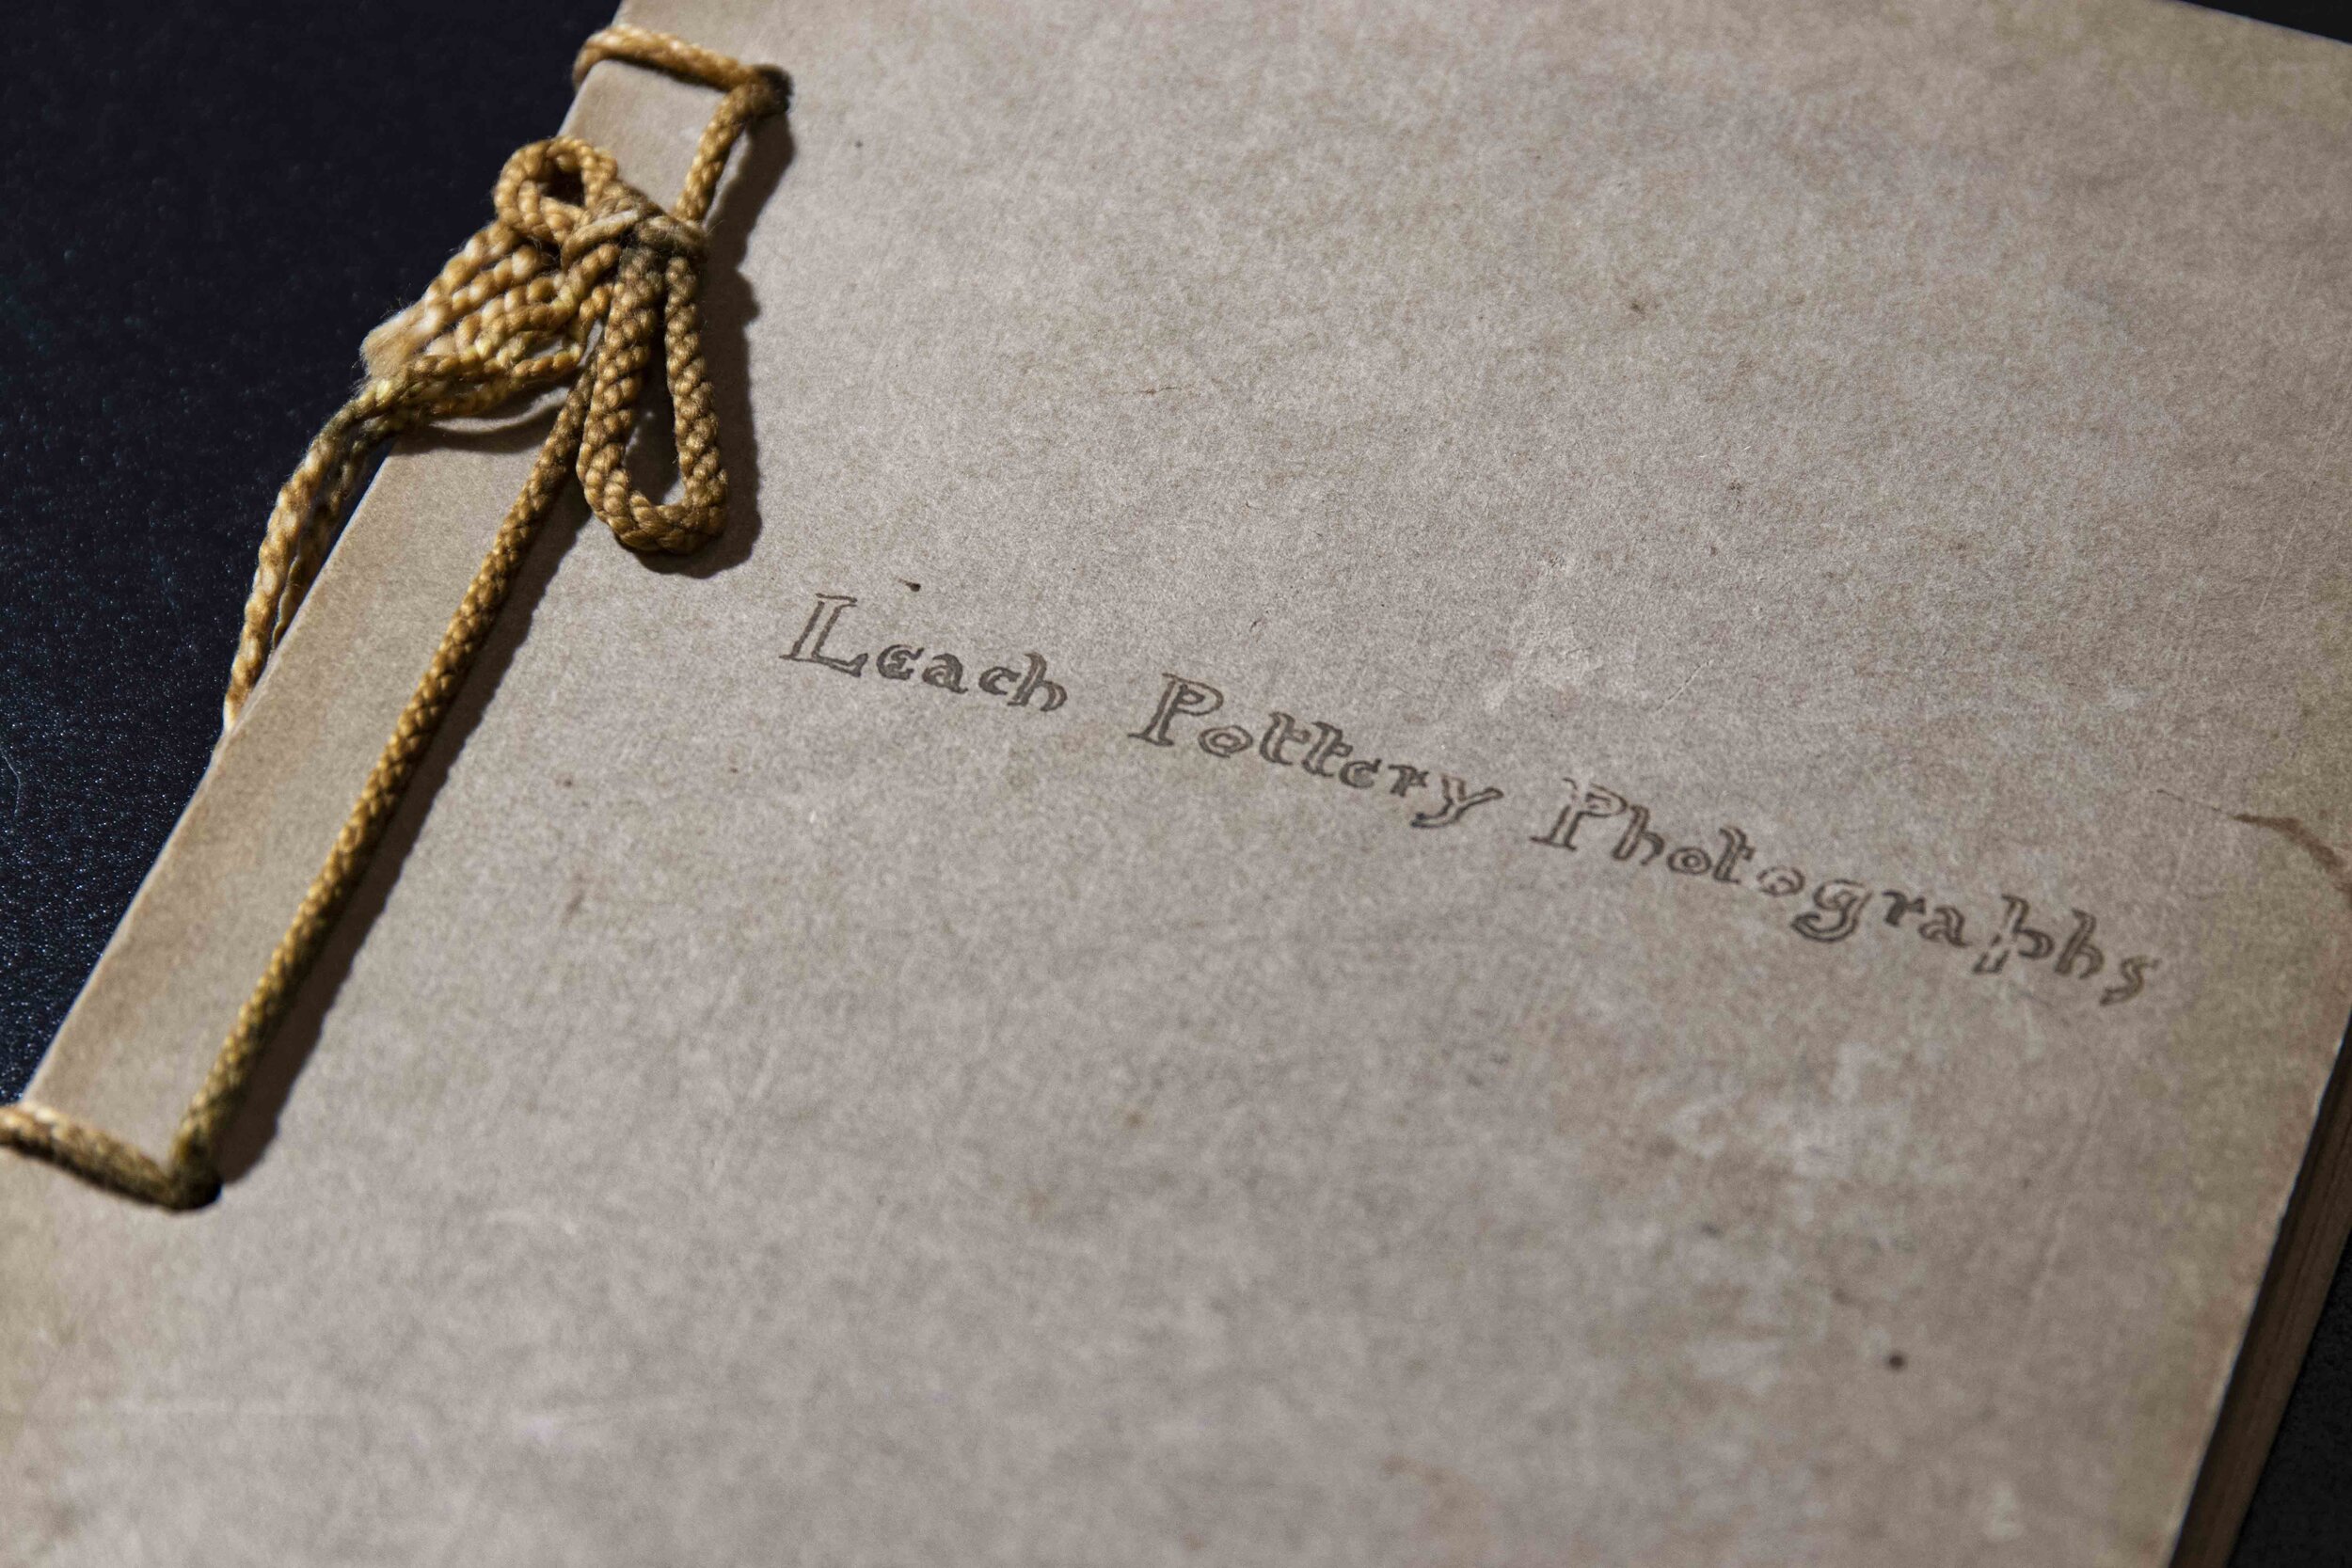 Leach Pottery Photographs